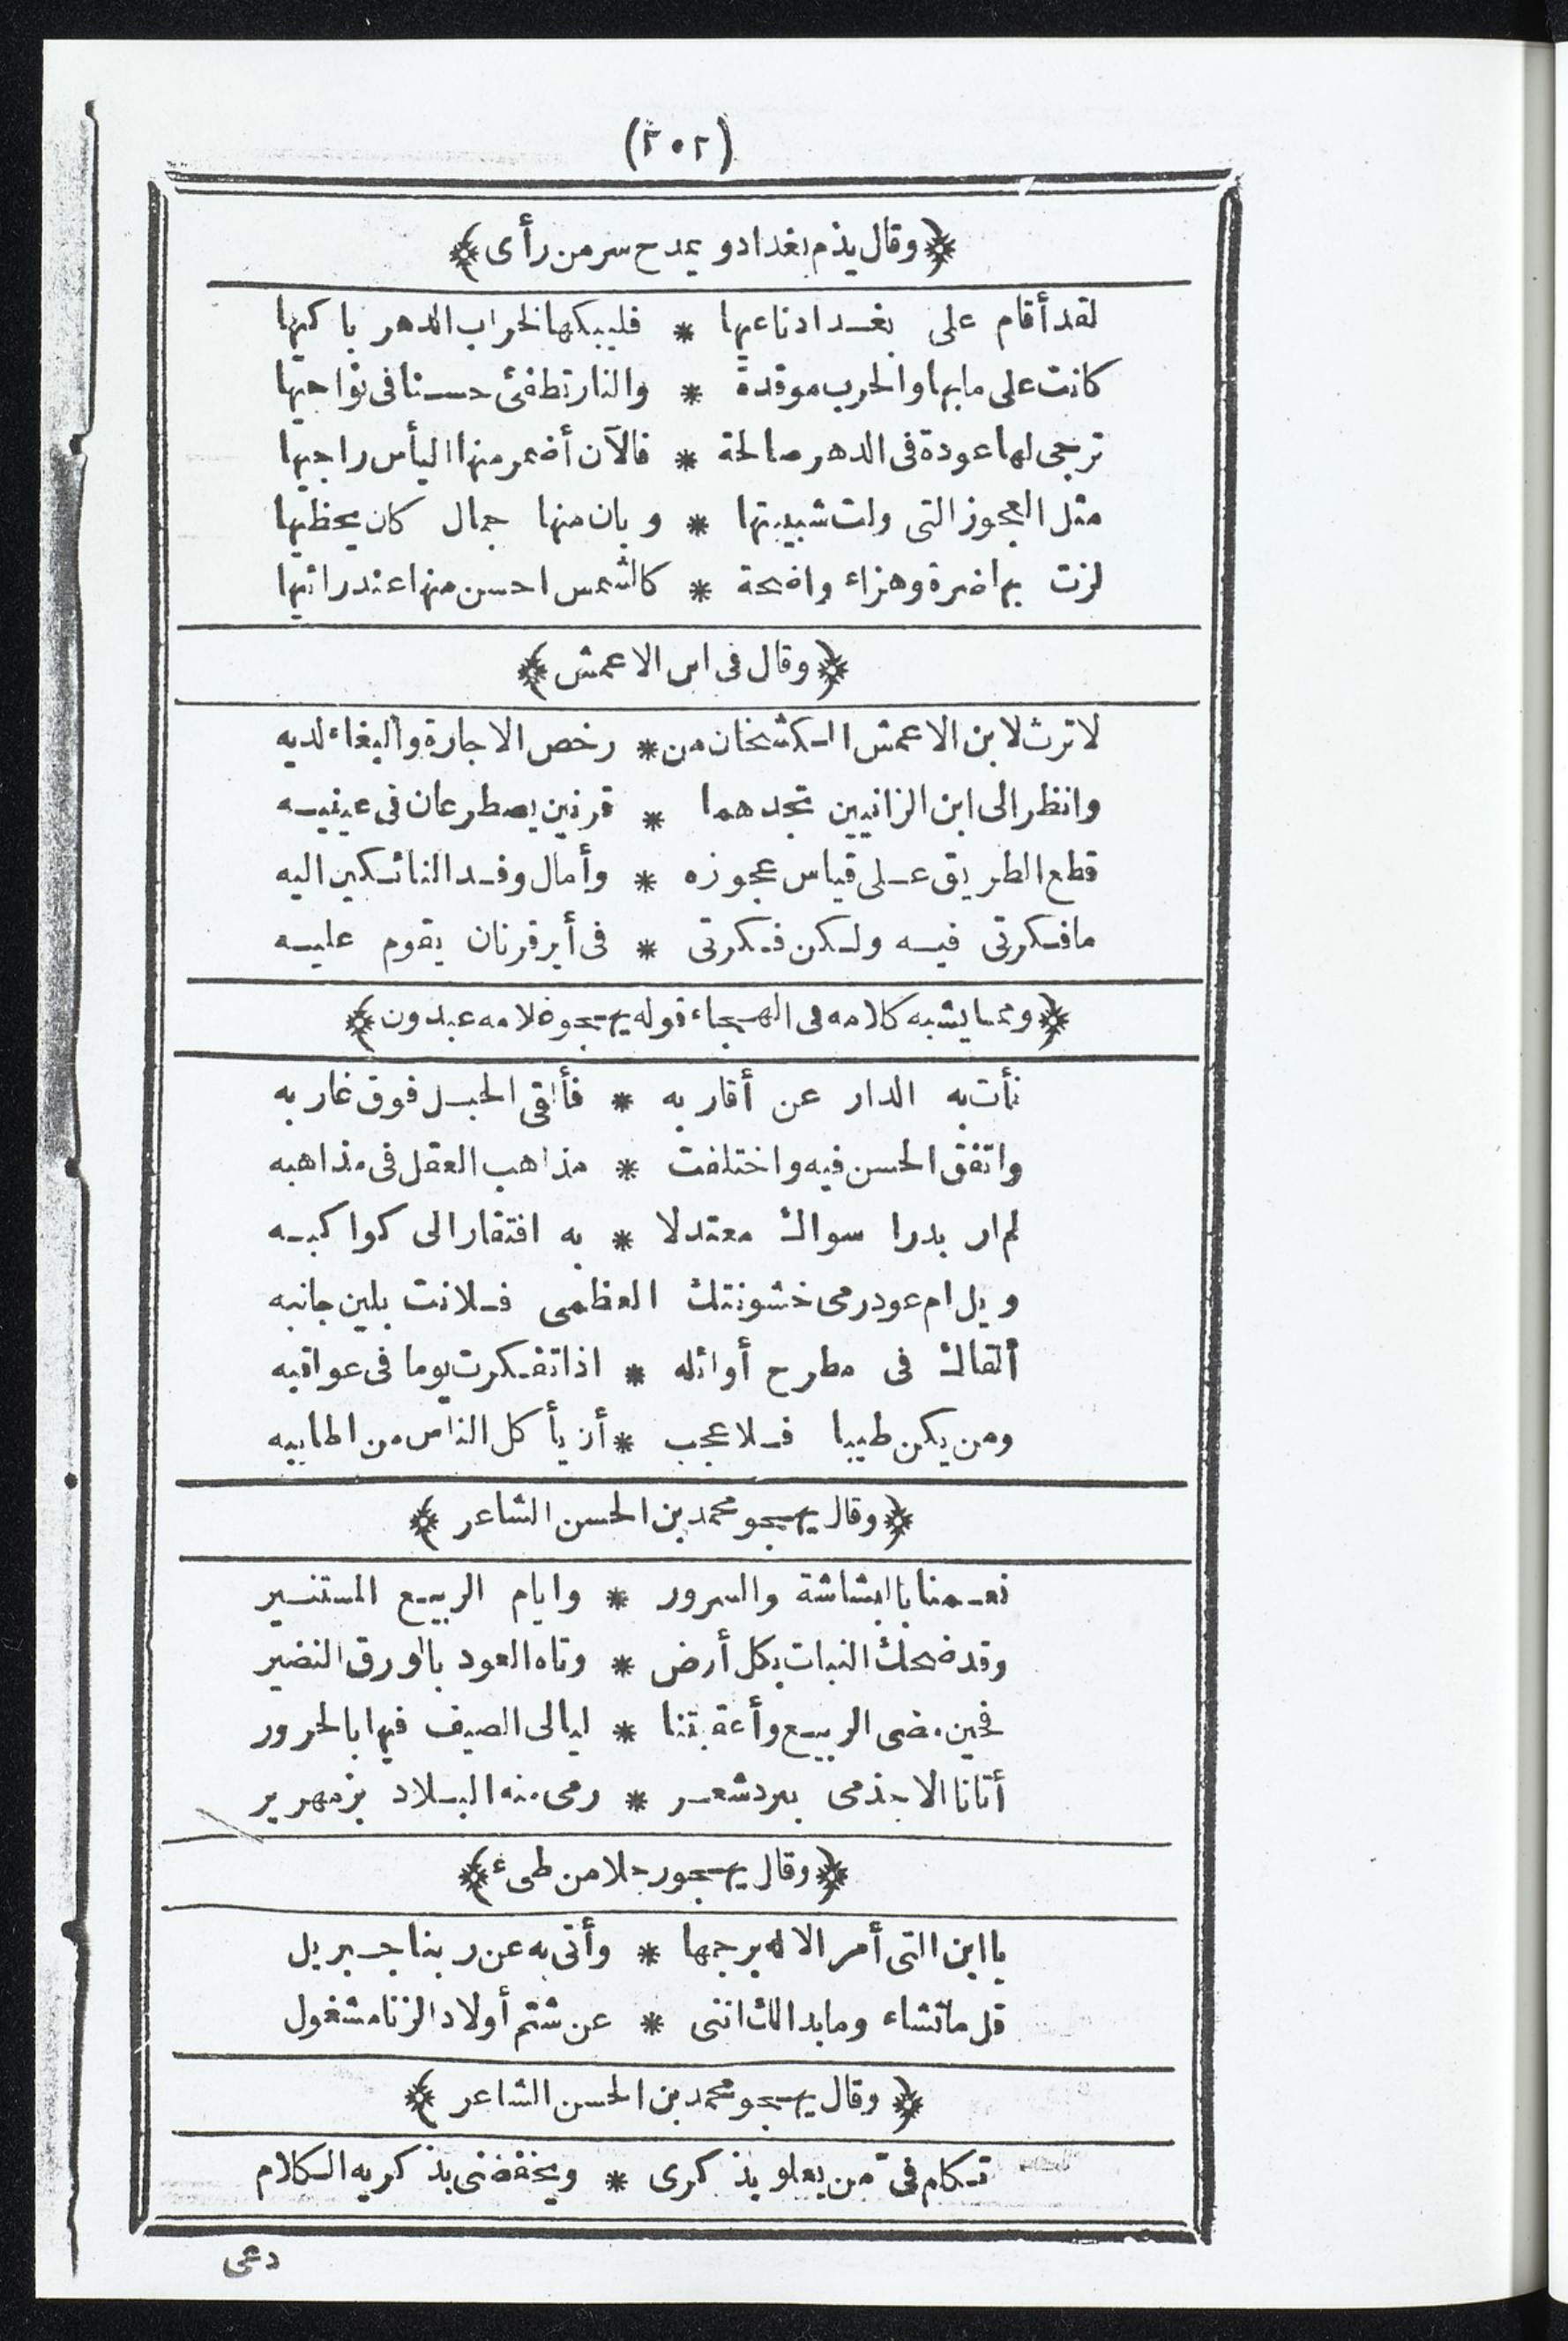 (٢٠٢)
﴿وقال يذم بغداد و يمدح سر من رأى﴾
لقد أقام على بغداد ناعيها * فليبكها لخراب الدهر باكيها
كانت على مابها والحرب موقدة * والنار تطفئ حسنا فى نواحيها
ترجى لها عودة فى الدهر صالحة * فالآن أضمر منها اليأس راجيها
مثل العجوز التى ولت شبيبتها * وبان منها جمال كان يحظيها
لزت بها ضرة وهزاء واضحة * كالشمس احسن منها عند رائيها
﴿وقال فى ابن الاعمش﴾
لا ترث لابن الاعمش الكشخان من * رخص الاجارة والبغاء لديه
وانظر الى ابن الزانيين تجدهما * قرنين يصطرعان فى عينيه
قطع الطريق على قياس عجوزه * وأمال وفد النائكين اليه
مافكرتى فيه ولكن فكرتى * فى أير قرنان يقوم عليه
﴿ومما يشبه كلامه فى الهجاء قوله يهجو غلامه عبدون﴾
نأت به الدار عن أقاربه * فألقى الحبل فوق غاربه
واتفق الحسن فيه واختلفت * مذاهب العقل فى مذاهبه
لم ار بدرا سواك معتدلا * به افتقار الى كواكبه
ويل ام عود رمى خشونتك العظمى فلانت بلين جانبه
ألقاك فى مطرح أوائله * اذا تفكرت يوما فى عواقبه
ومن يكن طيبا فلا عجب * أن يأكل الناس من اطايبه
﴿وقال يهجو محمد بن الحسن الشاعر﴾
نعمنا بالبشاشة والسرور * وايام الربيع المستنير
وقد ضحك النبات بكل أرض * وتاه العود بالورق النضير
فحين مضى الربيع وأعقبتنا * ليالى الصيف فيها بالحرور
أتانا الاجذمى ببرد شعر * رمى منه البلاد بزمهرير
﴿وقال يهجو رجلا من طىء﴾
يا ابن التى أمر الاله برجمها * وأتى به عن ربنا جبريل
قل ماتشاء وما بدالك اننى * عن شتم أولاد الزنا مشغول
﴿وقال يهجو محمد بن الحسن الشاعر﴾
تكلم فىّ من يعلو بذكرى * ويخفضنى بذكريه الكلام
دعى